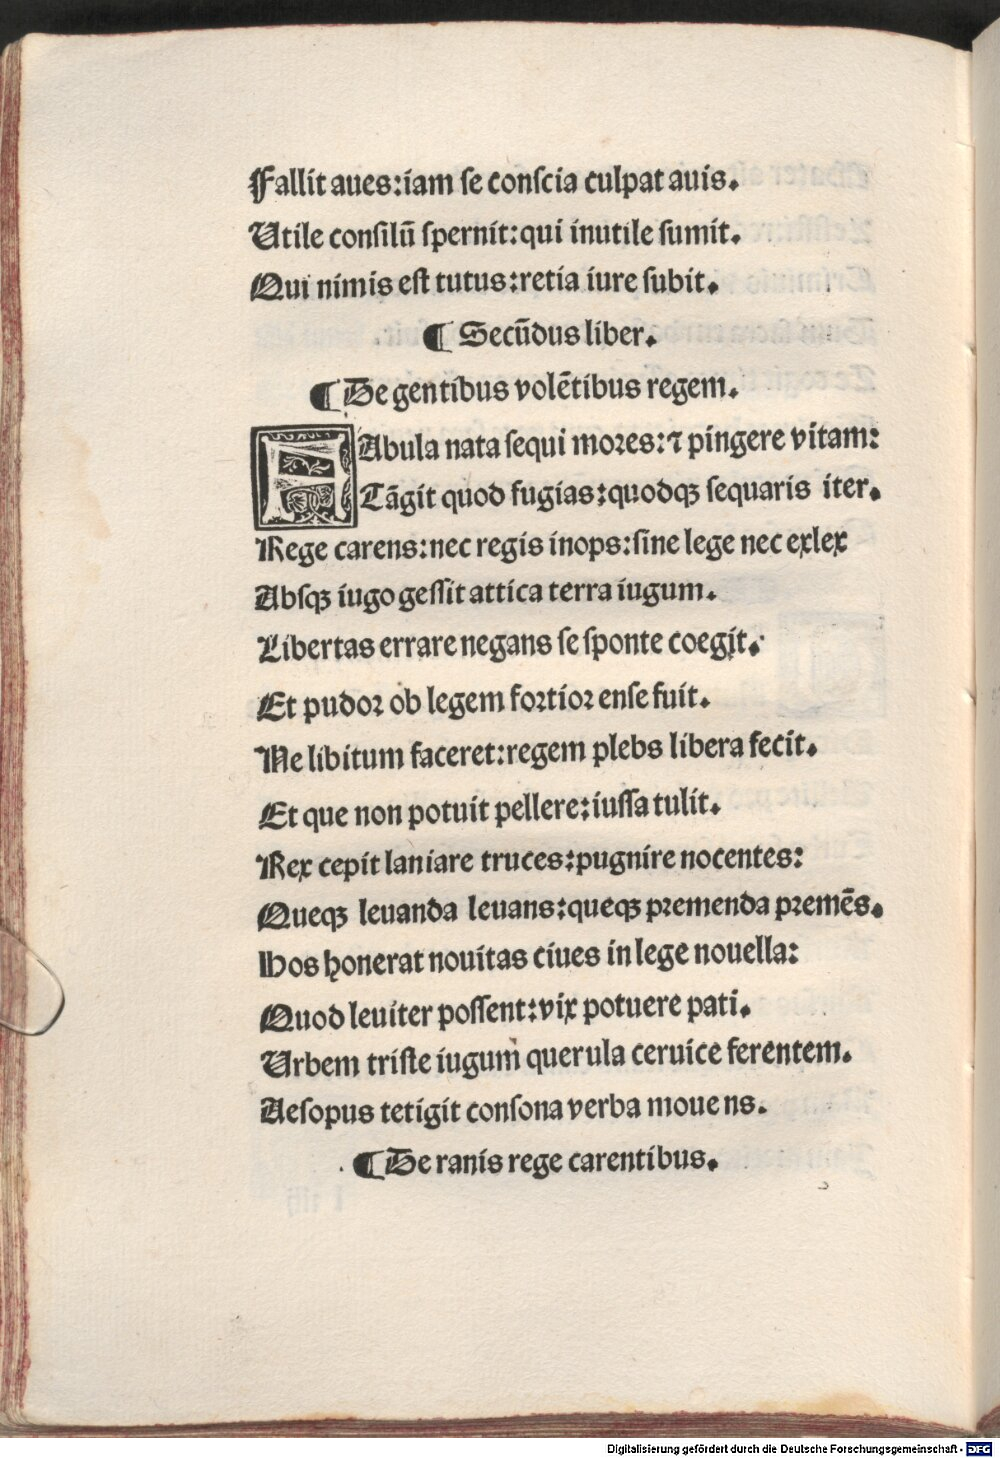 Fallit aues:iam se conscia culpat auis.
Utile consilū spernit:qui inutile sumit.
Qui nimis est tutus:retia iure subit.
¶ Secūdus liber.
¶ De gentibus volētibus regem.
FAbula nata sequi mores:⁊ pingere vitam:
Tāgit quod fugias:quodqꝫ sequaris iter.
Rege carens:nec regis inops:sine lege nec exlex
Absqꝫ iugo gessit attica terra iugum.
Libertas errare negans se sponte coegit.
Et pudor ob legem fortior ense fuit.
Ne libitum faceret:regem plebs libera fecit.
Et que non potuit pellere:iussa tulit.
Rex cepit laniare truces:pugnire nocentes:
Queqꝫ leuanda leuans:queqꝫ premenda premēs.
Hos honerat nouitas ciues in lege nouella:
Quod leuiter possent:vix potuere pati.
Urbem triste iugum querula ceruice ferentem.
Aesopus tetigit consona verba mouens.
¶ De ranis rege carentibus.
Digitalisierung gefördert durch die Deutsche Forschungsgemeinschaft - DFG